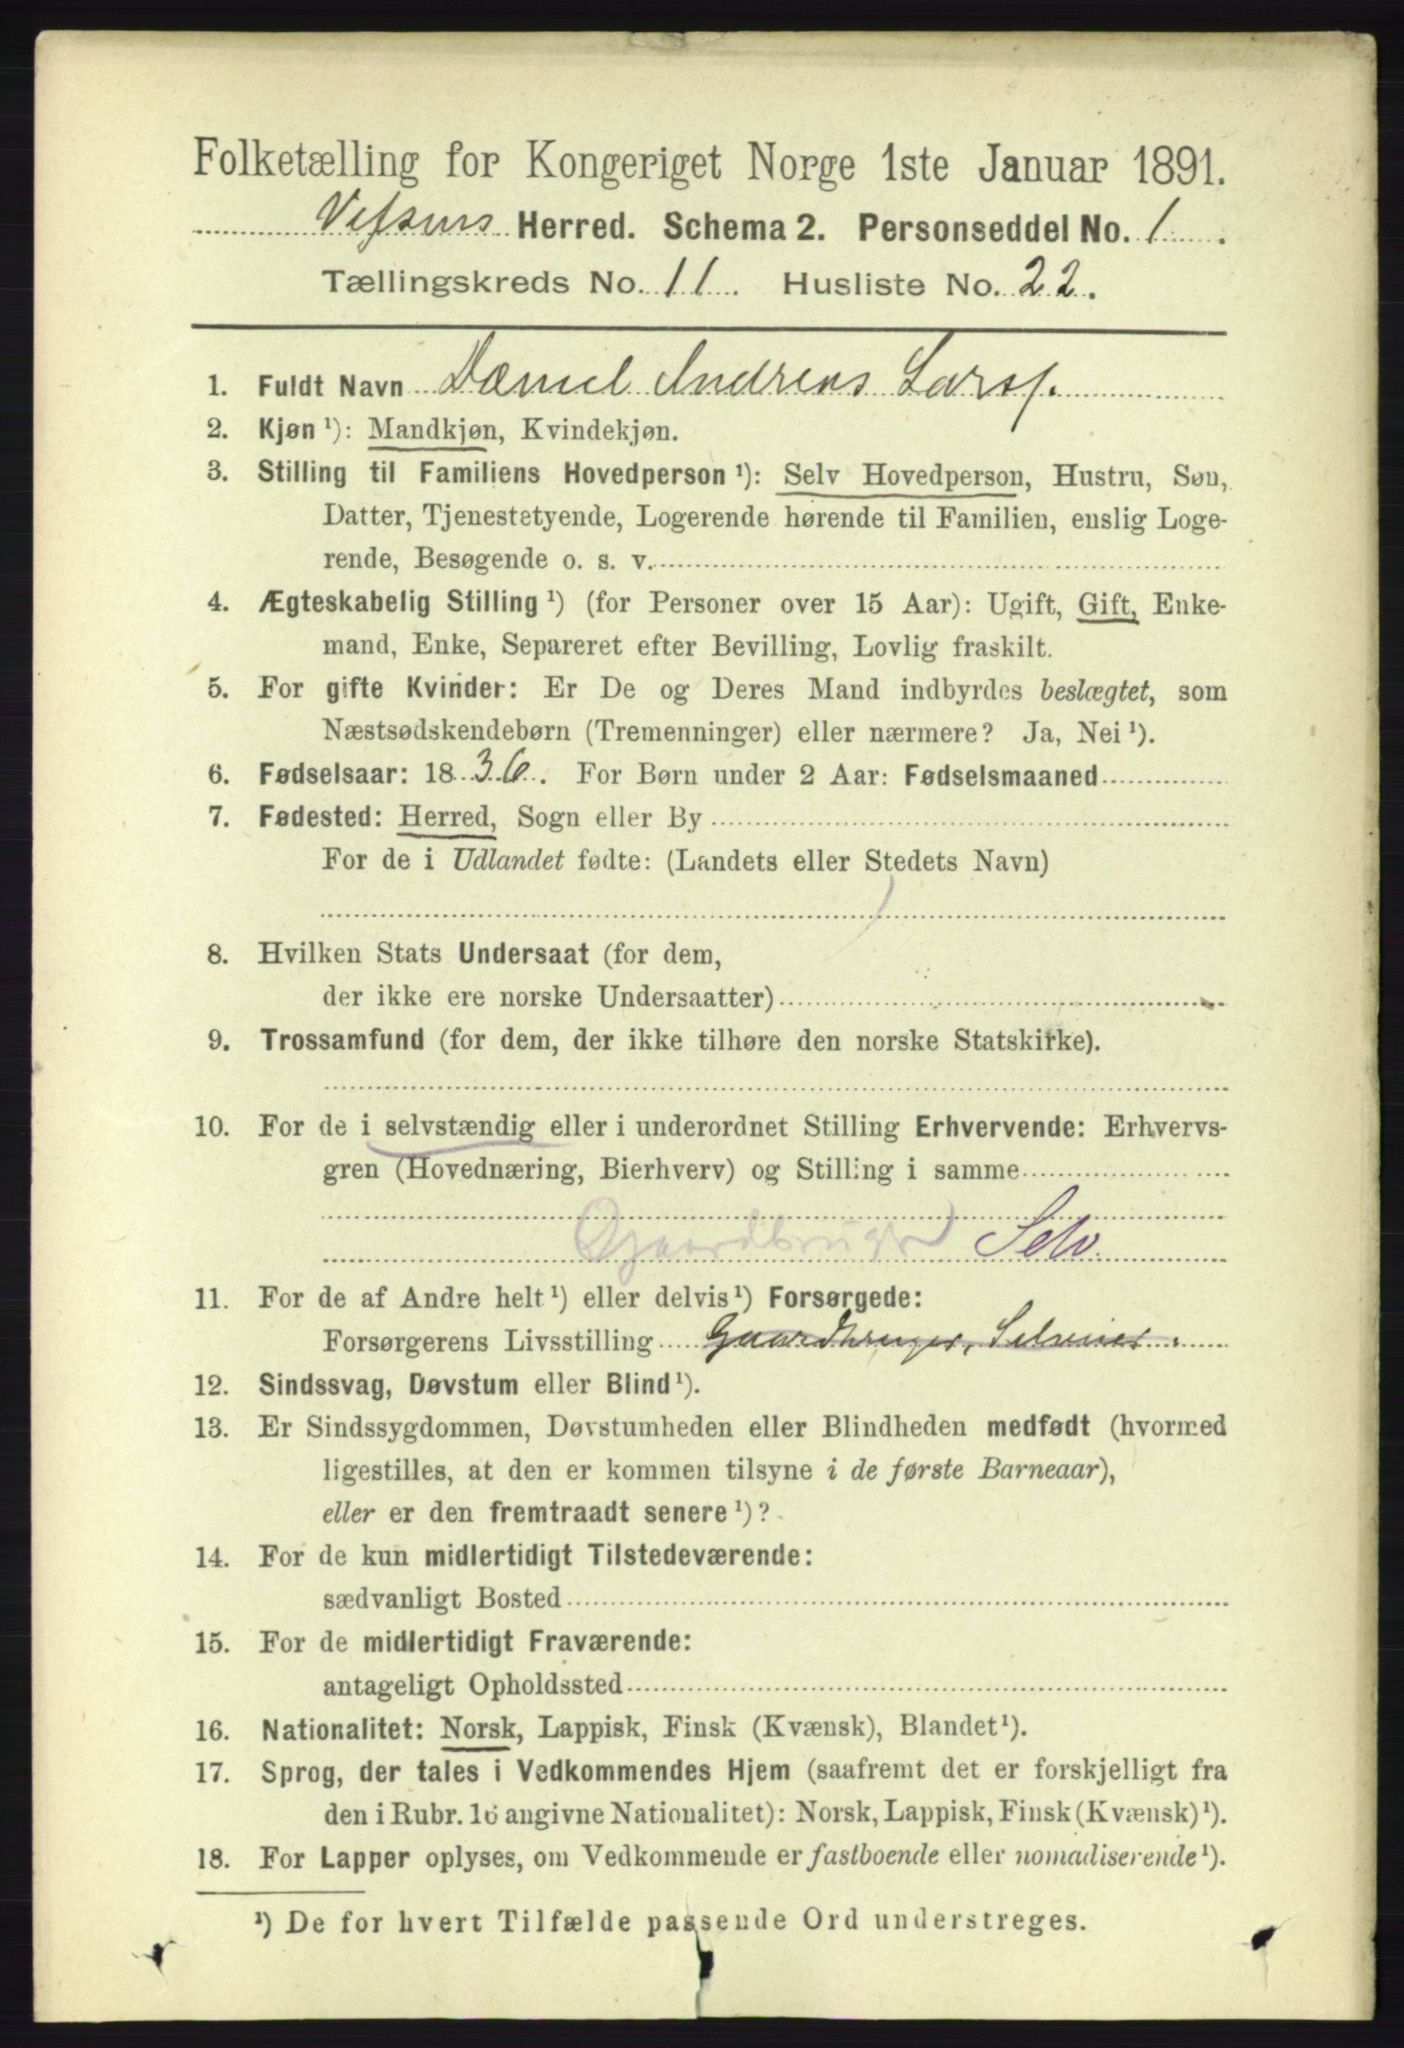 Folketælling for Kongeriget Norge 1ste Januar 1891.
Vefsens Herred. Schema 2. Personseddel No. 1.
Tællingskreds No. 11. Husliste No. 22.
1. Fuldt Navn Daniel Andreas Larss.
2. Kjøn ¹): Mandkjøn, Kvindekjøn.
3. Stilling til Familiens Hovedperson ¹): Selv Hovedperson, Hustru, Søn,
Datter, Tjenestetyende, Logerende hørende til Familien, enslig Loge-
rende, Besøgende o. s. v.
4. Ægteskabelig Stilling ¹) (for Personer over 15 Aar): Ugift, Gift, Enke-
mand, Enke, Separeret efter Bevilling, Lovlig fraskilt.
5. For gifte Kvinder: Er De og Deres Mand indbyrdes beslægtet, som
Næstsødskendebørn (Tremenninger) eller nærmere? Ja, Nei ¹).
6. Fødselsaar: 1836. For Børn under 2 Aar: Fødselsmaaned
7. Fødested: Herred, Sogn eller By
For de i Udlandet fødte: (Landets eller Stedets Navn)
8. Hvilken Stats Undersaat (for dem,
der ikke ere norske Undersaatter)
9. Trossamfund (for dem, der ikke tilhøre den norske Statskirke).
10. For de i selvstændig eller i underordnet Stilling Erhvervende: Erhvervs-
gren (Hovednæring, Bierhverv) og Stilling i samme
Gaardbruger Selv.
11. For de af Andre helt ¹) eller delvis ¹) Forsørgede:
Forsørgerens Livsstilling Gaardbruger, Selveier.
12. Sindssvag, Døvstum eller Blind ¹).
13. Er Sindssygdommen, Døvstumheden eller Blindheden medfødt (hvormed
ligestilles, at den er kommen tilsyne i de første Barneaar),
eller er den fremtraadt senere ¹)?
14. For de kun midlertidigt Tilstedeværende:
sædvanligt Bosted
15. For de midlertidigt Fraværende:
antageligt Opholdssted
16. Nationalitet: Norsk, Lappisk, Finsk (Kvænsk), Blandet ¹).
17. Sprog, der tales i Vedkommendes Hjem (saafremt det er forskjelligt fra
den i Rubr. 16 angivne Nationalitet): Norsk, Lappisk, Finsk (Kvænsk) ¹).
18. For Lapper oplyses, om Vedkommende er fastboende eller nomadiserende ¹).
¹) De for hvert Tilfælde passende Ord understreges.